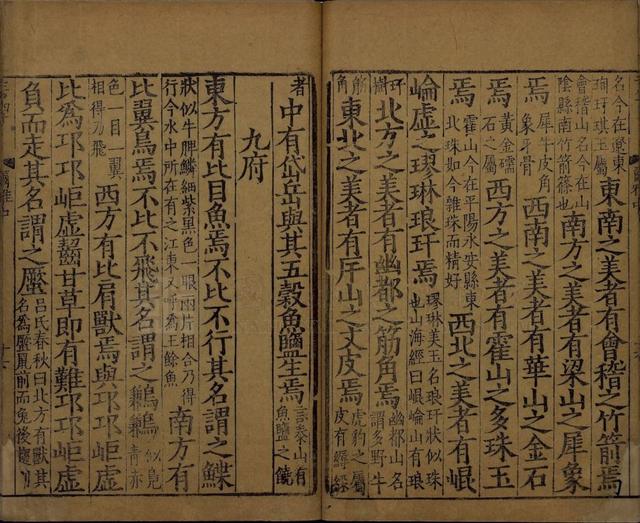 名今在遼東珣玗琪玉屬東南之美者有會稽之竹箭焉
會稽山名今在山陰縣南竹箭篠也南方之美者有梁山之犀象
焉犀牛皮角象牙骨西南之美者有華山之金石
焉黃金礝石之屬西方之美者有霍山之多珠玉
焉霍山今在平陽永安縣東北珠如今雜珠而精好西北之美者有崐
崘虛之璆琳琅玕焉璆琳美玉名琅玕狀似珠也山海經曰崐崘山有琅
玕樹北方之美者有幽都之筋角焉幽都山名謂多野牛
角東北之美者有厈山之文皮焉虎豹之屬皮有縟綵
者中有岱岳與其五穀魚鹽生焉言泰山有魚鹽之饒
九府
東方有比目魚焉不比不行其名謂之鰈
狀似牛脾鱗細紫黑色一眼兩片相合乃得行今水中所在有之江東又呼為王餘魚南方有
比翼鳥焉不比不飛其名謂之鶼鶼似鳧青赤
色一目一翼相得乃飛西方有比肩獸焉與邛邛岠虛
比為邛邛岠虛齧甘草即有難邛邛岠虛
負而走其名謂之蟨呂氏春秋曰北方有獸其名為蟨鼠前而兔後趨
爾雅中